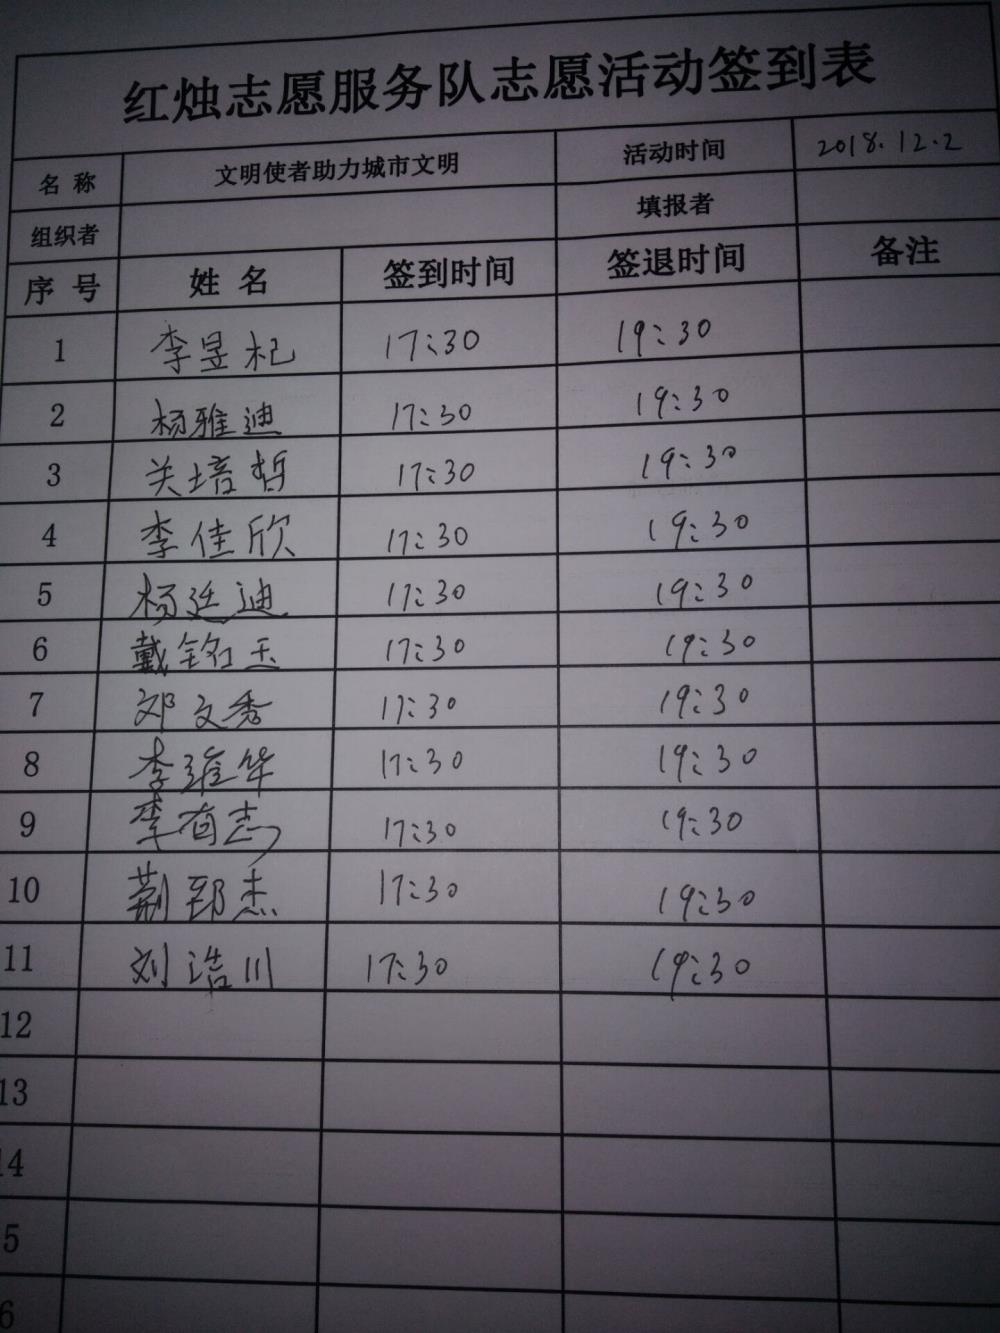 红烛志愿服务队志愿活动签到表
名 称 文明使者助力城市文明 活动时间 2018.12.2
组织者 填报者
序 号 姓 名 签到时间 签退时间 备注
1 李昱杞 17:30 19:30
2 杨雅迪 17:30 19:30
3 关培哲 17:30 19:30
4 李佳欣 17:30 19:30
5 杨廷迪 17:30 19:30
6 戴铭玉 17:30 19:30
7 邓文秀 17:30 19:30
8 李维华 17:30 19:30
9 李有志 17:30 19:30
10 荆郅杰 17:30 19:30
11 刘浩川 17:30 19:30
12
13
14
5
6